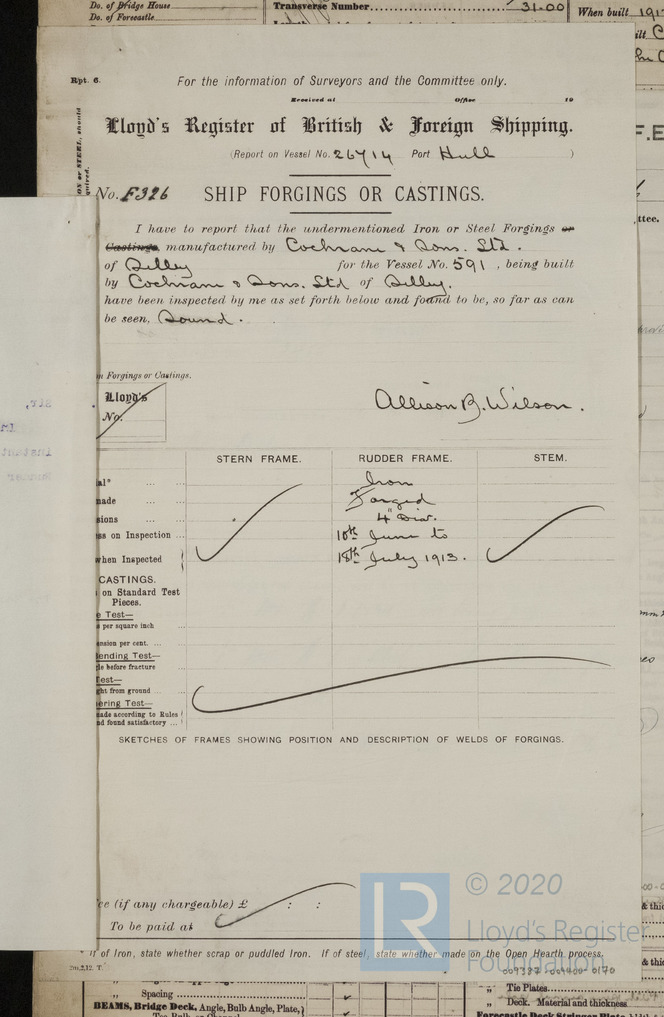 Do. of Bridge House
Do. of Forecastle
Transverse Number
31-00
When built 191
Rpt. 6.
For the information of Surveyors and the Committee only.
Received at Office 19
Lloyd's Register of British & Foreign Shipping.
(Report on Vessel No. 26714 Port Hull )
No. F326 SHIP FORGINGS OR CASTINGS.
I have to report that the undermentioned Iron or Steel Forgings or
Castings, manufactured by Cochrane & Sons. Ltd.
of Selby for the Vessel No. 591, being built
by Cochrane & Sons. Ltd of Selby.
have been inspected by me as set forth below and found to be, so far as can
be seen, Sound.
Forgings or Castings.
Lloyd's
No.
Allison B. Wilson.
STERN FRAME. RUDDER FRAME. STEM.
Iron
made Forged
4" Dia.
on Inspection ... 10th June to
when Inspected 18th July 1913.
CASTINGS.
on Standard Test
Pieces.
Test—
per square inch
per cent. ...
before fracture
Test—
from ground
made according to Rules
and found satisfactory ...
SKETCHES OF FRAMES SHOWING POSITION AND DESCRIPTION OF WELDS OF FORGINGS.
(if any chargeable) £ : :
To be paid at
* If of Iron, state whether scrap or puddled Iron. If of steel, state whether made on the Open Hearth process.
LR © 2020
Lloyd's Register
Foundation
009387-009400-0170
" Spacing
BEAMS, Bridge Deck, Angle, Bulb Angle, Plate,
" Tie Plates
" Deck. Material and thickness